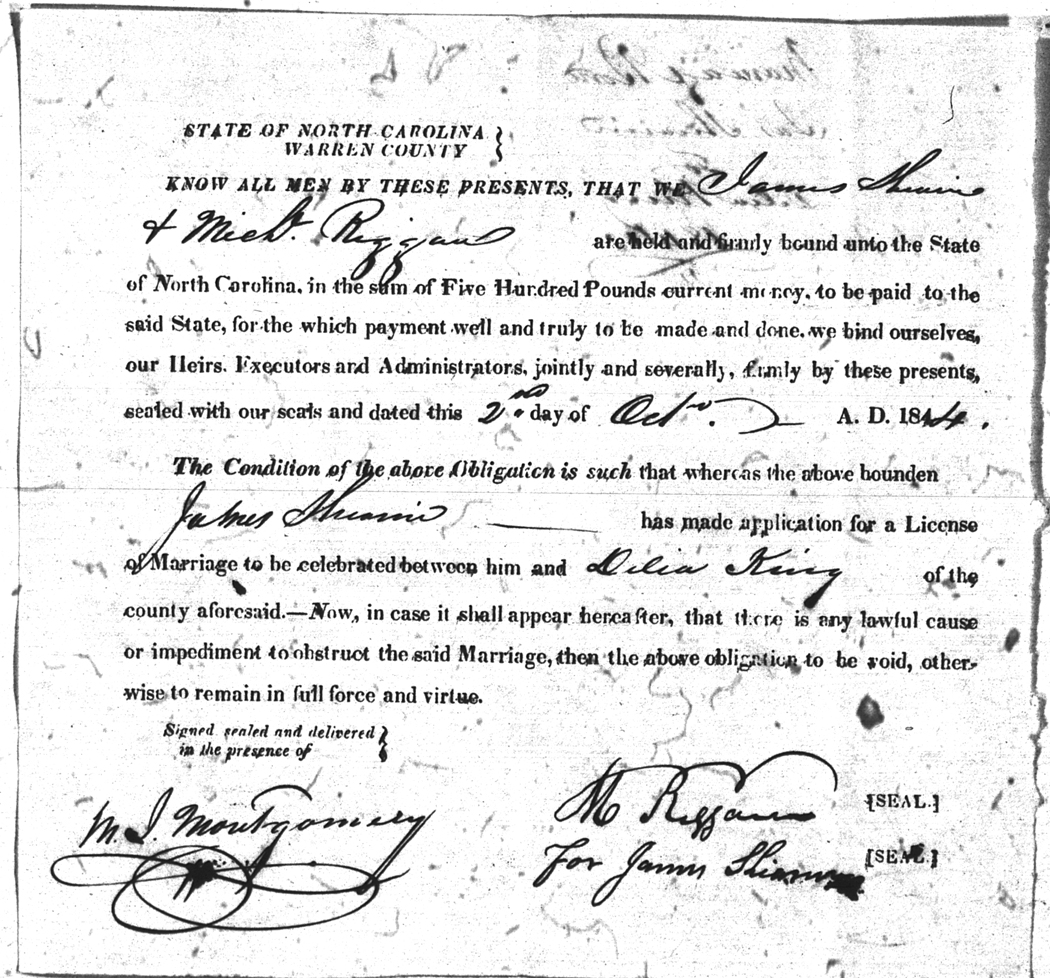 STATE OF NORTH CAROLINA }
WARREN COUNTY
KNOW ALL MEN BY THESE PRESENTS, THAT WE James
& Mich. Riggan are held and firmly bound unto the State
of North Carolina, in the sum of Five Hundred Pounds current money, to be paid to the
said State, for the which payment well and truly to be made and done, we bind ourselves,
our Heirs, Executors and Administrators, jointly and severally, firmly by these presents,
sealed with our seals and dated this 2nd day of Octr. A. D. 1844.
The Condition of the above Obligation is such that whereas the above bounden
James has made application for a License
of Marriage to be celebrated between him and Delia King of the
county aforesaid.—Now, in case it shall appear hereafter, that there is any lawful cause
or impediment to obstruct the said Marriage, then the above obligation to be void, other-
wise to remain in full force and virtue.
Signed sealed and delivered }
in the presence of
M Riggan [SEAL.]
M. J. Montgomery
For James [SEAL.]